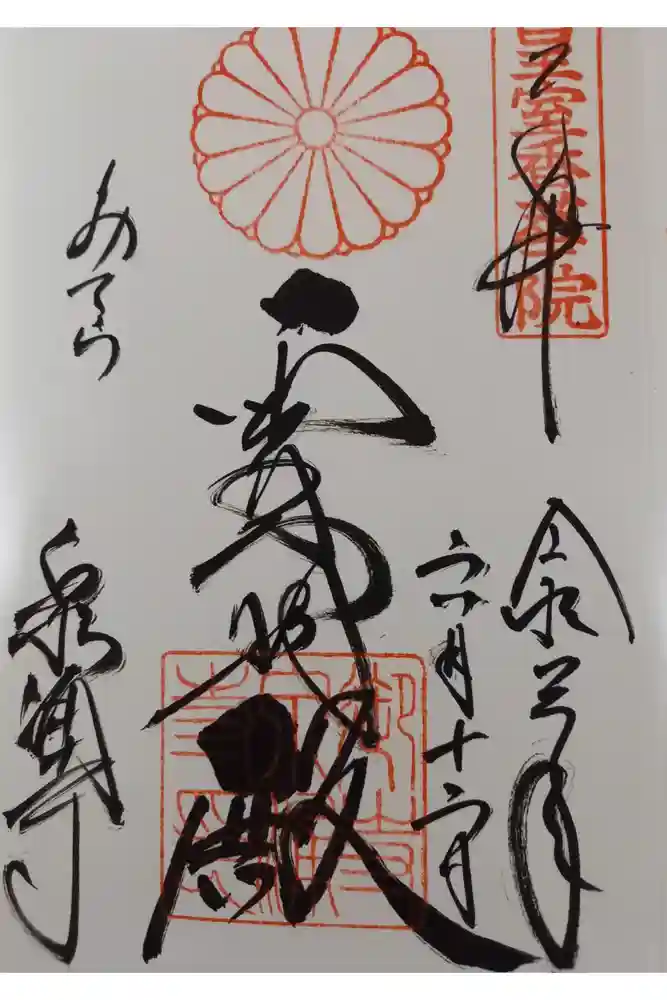 皇室香華院
奉拝
令和三年
六月十六日
霊明殿
みてら
泉涌寺